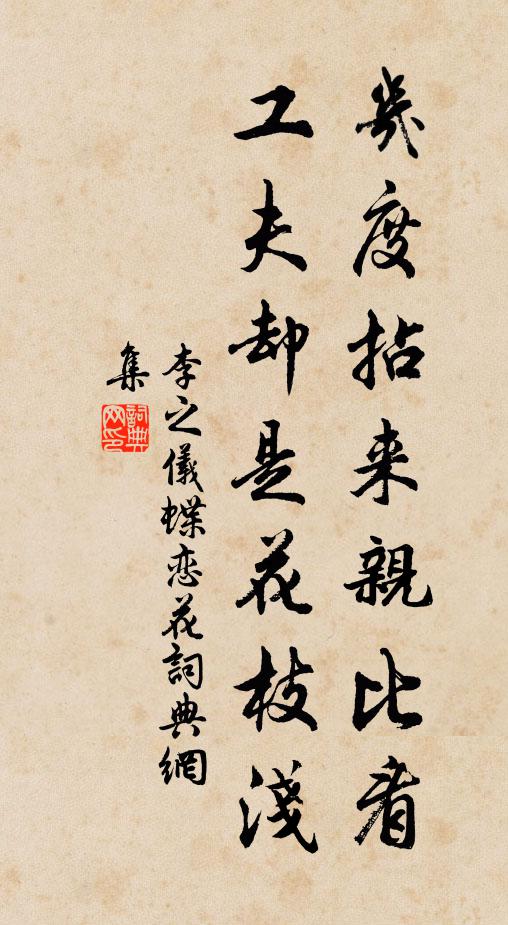 幾度拈来親比看
工夫却是花枝淺
李之儀蝶恋花詞典網
集
詞典网印